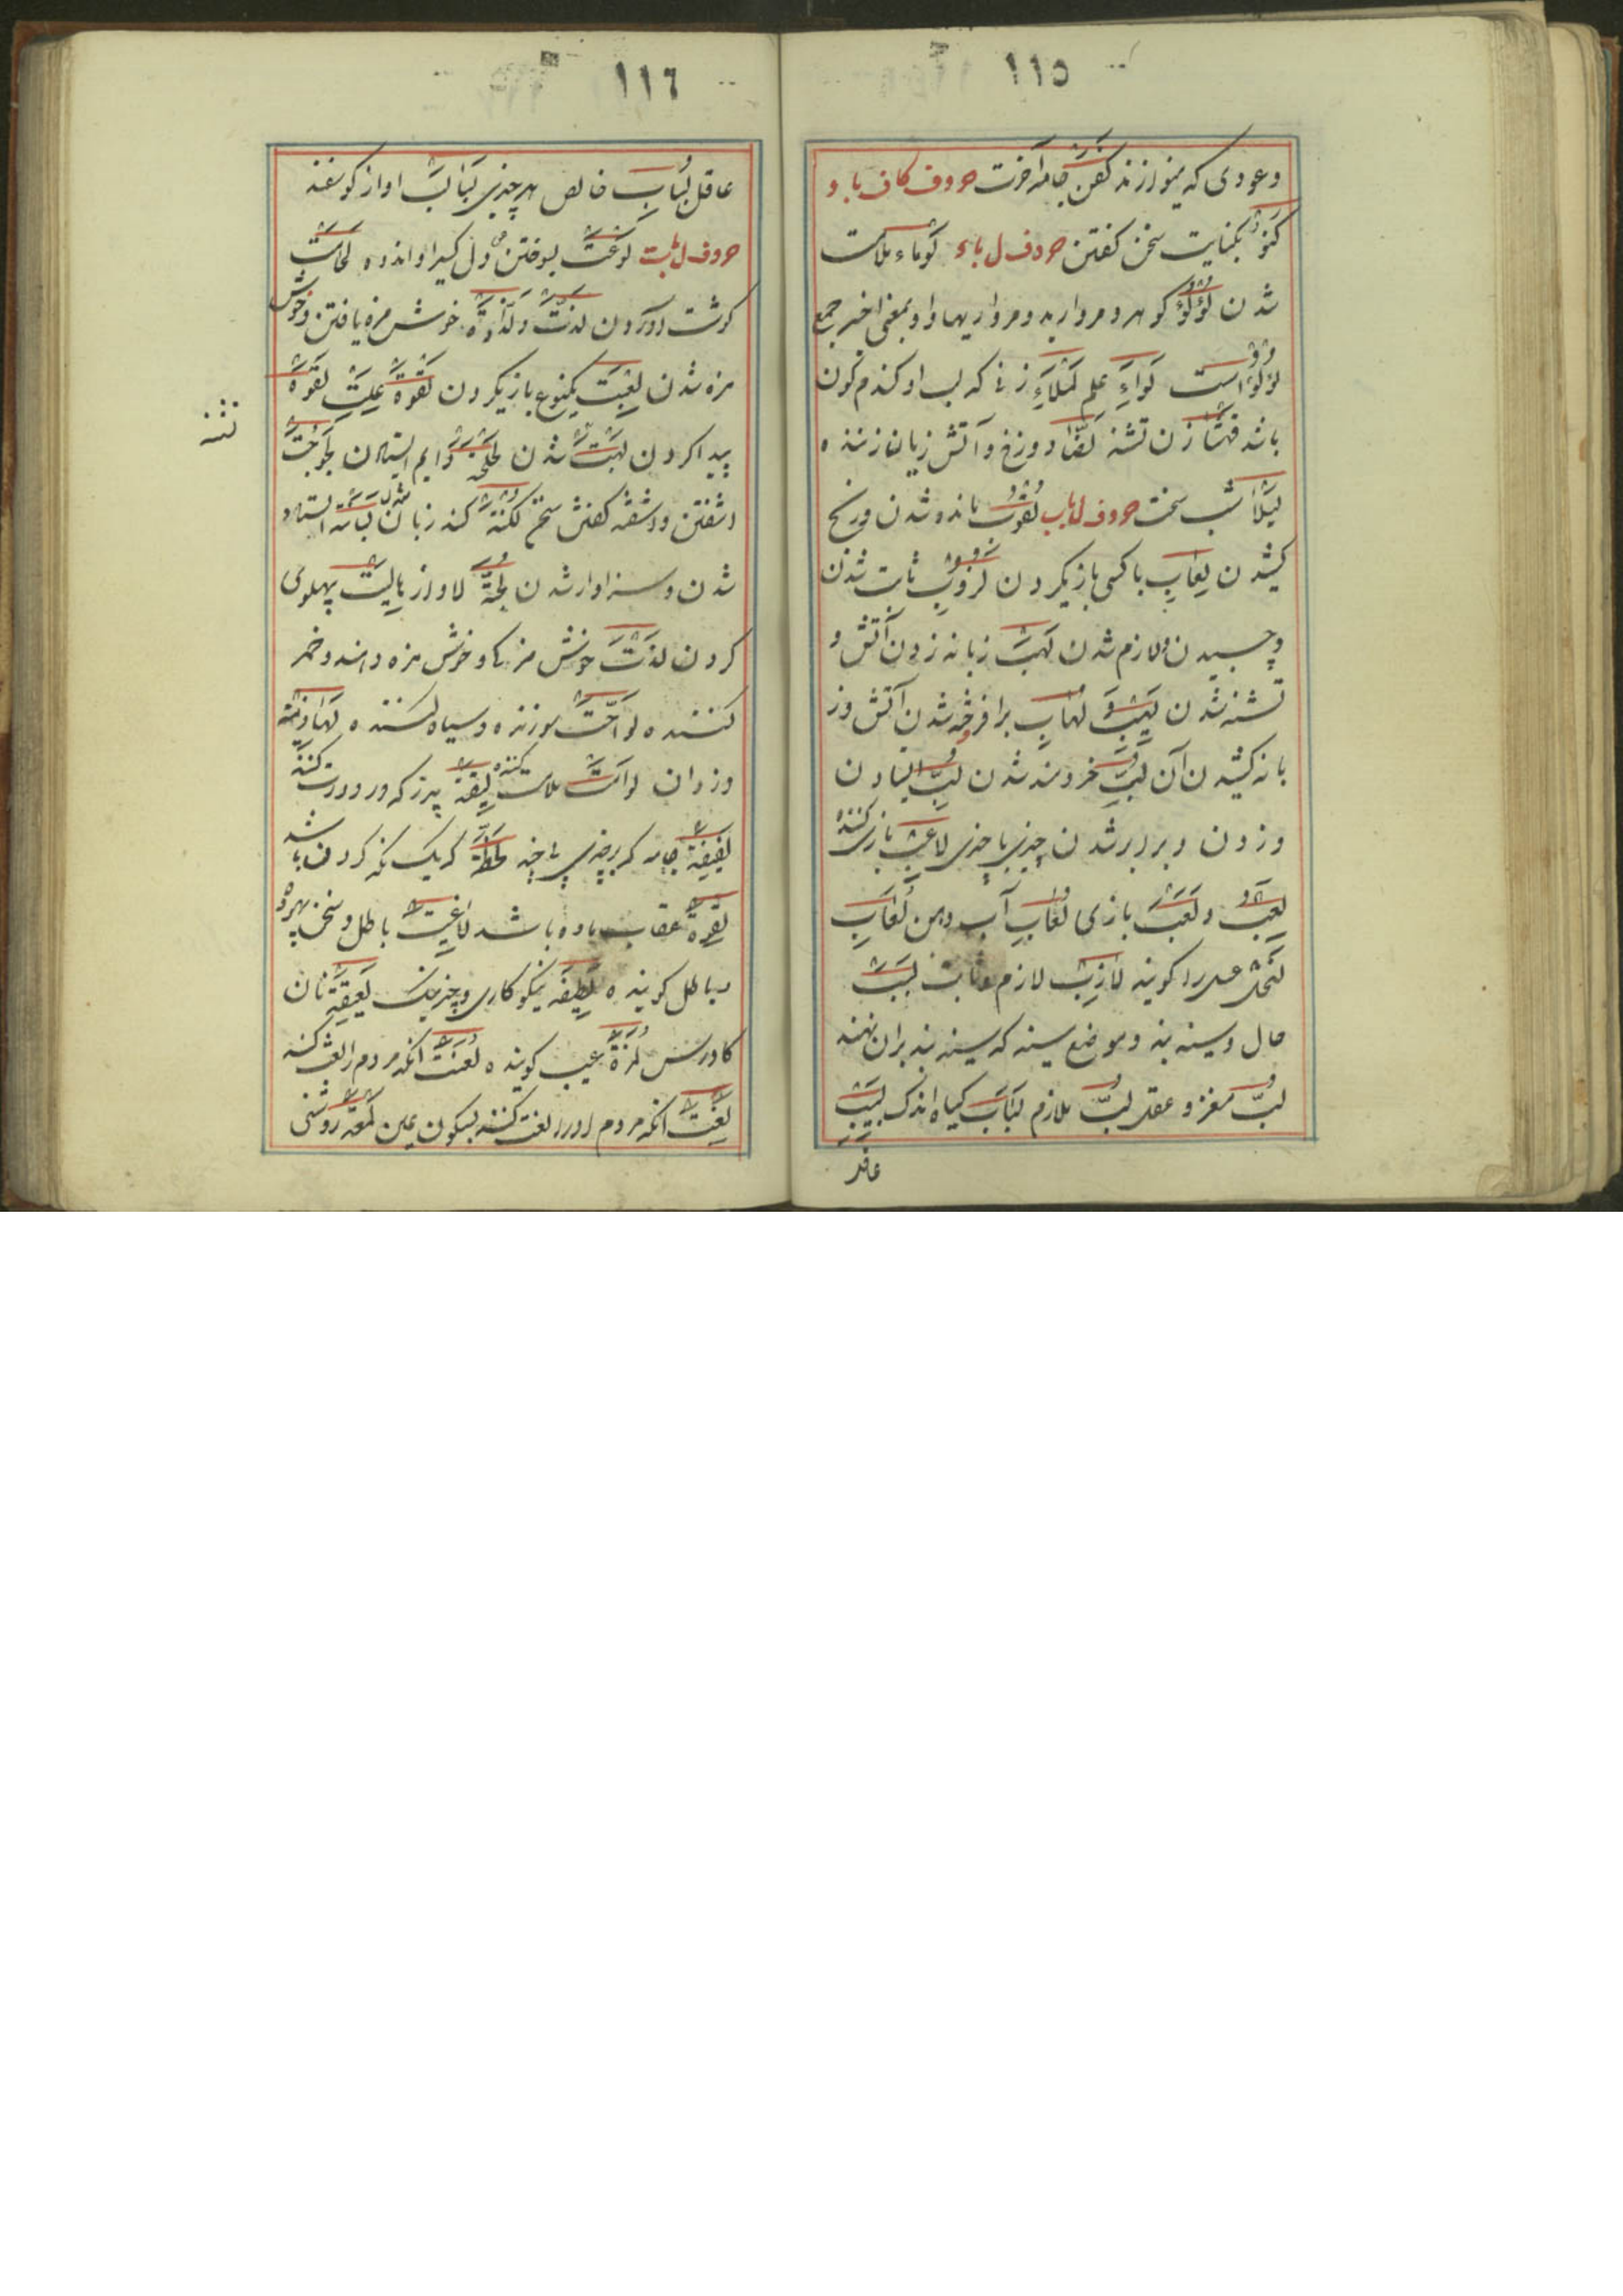 ١١٥
وعودی که بنوازند کفن جامه آخرت حروف کاف با و
کنو بکنایت سخن کفتن حروف ل باء لوماء ملامت
شدن لؤلؤ کوهر و مروارید و مرواریدها و او بمعنی اخیر جمع
لؤلؤ است لواء علم لمیاء زنی که لب او کندم کون
باشد زن تشنه لظا دوزخ و آتش زبان زننده
لیلا شب سخت حروف ل باب لغوب مانده شدن و رنج
کشیدن لعاب با کسی بازیکردن لزوب ثابت شدن
و چسبیدن و لازم شدن لهب زبانه زدن آتش و
تشنه شدن لهیب و لهاب برافروخته شدن آتش و ز
بانه کشیدن آن لب خردمند شدن لب ایستادن
وزدن و برابر شدن چیزی با چیزی لاعب بازی کننده
لعب و لعب بازی لعاب آب دهن لعاب
لنحل عسل را کویند لازب لازم و ثابت لبب
مال و سینه بند و موضع سینه که سینه بند بران نهند
لب مغز و عقل لب ملازم لباب کیاه اندک لبیب
عاقل
١١٦
عاقل لباب خالص هر چیزی لبالب آواز کوسفند
حروف ل بت لوعت سوختن دل کسی را و اندوه لحامت
کوشت آوردن لذت و لذاذه خوش مزه یافتن و خوش
مزه شدن لعبت یکنوع بازیکردن لقوة علت لقوه
پیدا کردن شدن دایم لجوجت
آشفتن و آشفته کفتن سخن لکنة کند زبان شدن استاد
شدن و سزاوار شدن لجة پهلوی
کردن لذت خوش مزه کی و خوش مزه دهنده و خمر
کننده لواحت سوزنده و سیاه کننده
وزدان لوامت ملامت کننده لیقة پرز که در دوات کنند
لفیفة جامه که بر چیزی لحظة که یک نکه کردن باشد
لقوة عقاب ماده باشد لاغیت باطل و سخن بیهوده
و باطل کوینده لطیفه نیکوکاری و چیز نیک نان
لمزة عیب کوینده لعنت آنکه مردم را لعنت کند
لعنت آنکه مردم او را لعنت کنند بسکون عین لمعة روشنی